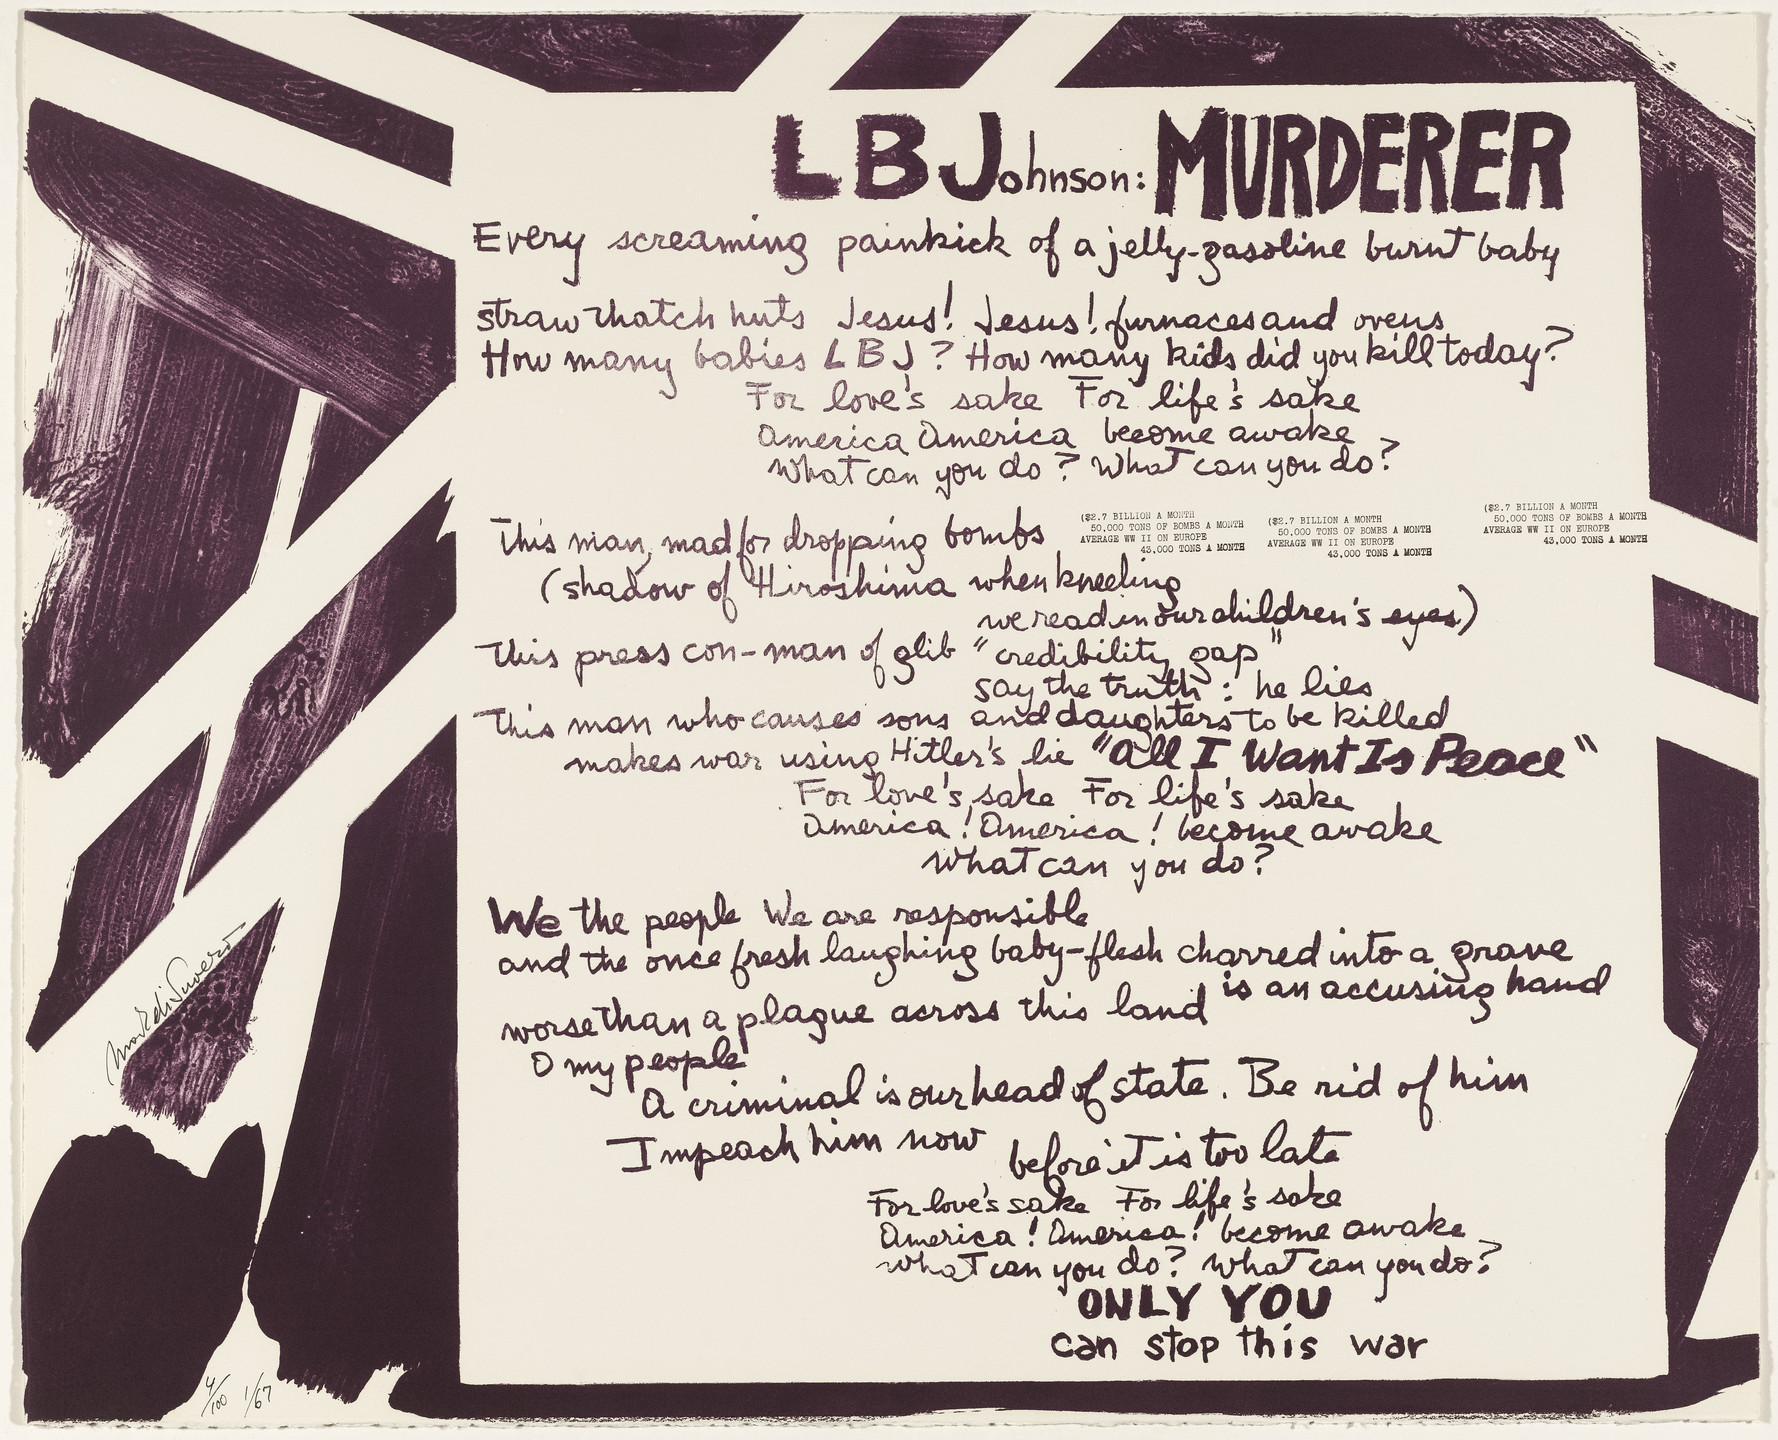 LBJohnson: MURDERER
Every screaming painkick of a jelly-gasoline burnt baby
straw thatch huts Jesus! Jesus! furnaces and ovens
How many babies LBJ? How many kids did you kill today?
For love's sake For life's sake
America America become awake
What can you do? What can you do?
This man, mad for dropping bombs
($2.7 BILLION A MONTH
50,000 TONS OF BOMBS A MONTH
AVERAGE WW II ON EUROPE
43,000 TONS A MONTH
($2.7 BILLION A MONTH
50,000 TONS OF BOMBS A MONTH
AVERAGE WW II ON EUROPE
43,000 TONS A MONTH
($2.7 BILLION A MONTH
50,000 TONS OF BOMBS A MONTH
AVERAGE WW II ON EUROPE
43,000 TONS A MONTH
(shadow of Hiroshima when kneeling
we read in our children's eyes)
This press con-man of glib "credibility gap"
say the truth: he lies
This man who causes sons and daughters to be killed
makes war using Hitler's lie "All I Want Is Peace"
For love's sake For life's sake
America! America! become awake
What can you do?
We the people We are responsible
and the once fresh laughing baby-flesh charred into a grave
is an accusing hand
worse than a plague across this land
O my people
A criminal is our head of state. Be rid of him
Impeach him now before it is too late
For love's sake For life's sake
America! America! become awake
What can you do? What can you do?
ONLY YOU
can stop this war
Mark di Suvero
4/100 1/67